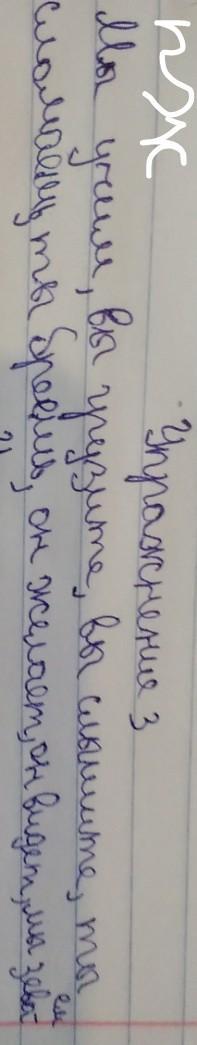 пж
Упражнение 3
Мы учим, вы грузите, вы слышите, ты
сломаешь, ты бреешь, он желает, он видет, мы зева
ем